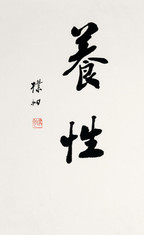 養性
樸初